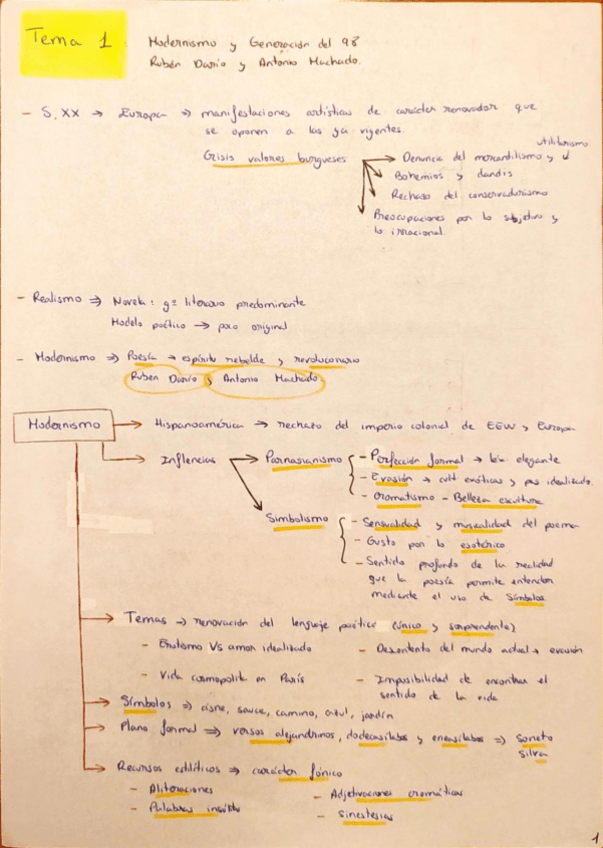 Tema 1: Modernismo y Generación del 98
Rubén Darío y Antonio Machado.
- S. XX → Europa ⇒ manifestaciones artísticas de carácter renovador que
se oponen a las ya vigentes.
Crisis valores burgueses → Denuncia del mercantilismo y utilitarismo
Bohemios y dandis
Rechazo del conservadurismo
Preocupaciones por lo subjetivo y
lo irracional.
- Realismo ⇒ Novela: gº literario predominante
Modelo poético → poco original
- Modernismo ⇒ Poesía → espíritu rebelde y revolucionario
Rubén Darío y Antonio Machado
Modernismo → Hispanoamérica → rechazo del imperio colonial de EEUU y Europa
→ Inflencias → Parnasianismo { - Perfección formal → léx. elegante
- Evasión → cult exóticas y pas idealizado.
- Cromatismo - Belleza escultura
Simbolismo { - Sensualidad y musicalidad del poema
- Gusto por lo esotérico
- Sentido profundo de la realidad
que la poesía permite entender
mediante el uso de símbolos
→ Temas → renovación del lenguaje poético (único y sorprendente)
- Erotismo Vs amor idealizado - Descontento del mundo actual → evasión
- Vida cosmopolita en París - Imposibilidad de encontrar el
sentido de la vida
→ Símbolos ⇒ cisne, sauce, camino, azul, jardín
→ Plano formal ⇒ versos alejandrinos, dodecasílabos y eneasílabos ⇒ Soneto
Silva
→ Recursos estilíticos ⇒ carácter fónico
- Aliteraciones - Adjetivaciones cromáticas
- Palabras - sinestesias
1